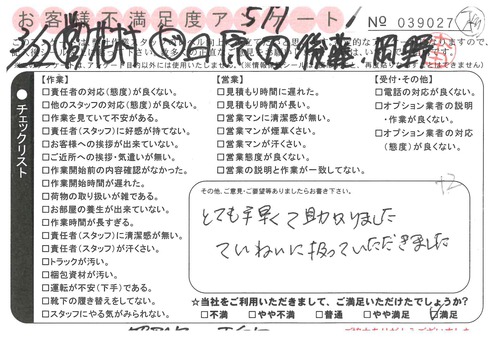 お客様不満足度アンケート
No 039027
チェックリスト
【作業】
□責任者の対応(態度)が良くない。
□他のスタッフの対応(態度)が良くない。
□作業を見ていて不安がある。
□責任者(スタッフ)に好感が持てない。
□お客様への挨拶が出来ていない。
□ご近所への挨拶・気遣いが無い。
□作業開始前の内容確認がなかった。
□作業開始時間が遅れた。
□荷物の取り扱いが雑である。
□お部屋の養生が出来ていない。
□作業時間が長すぎる。
□責任者(スタッフ)に清潔感が無い。
□責任者(スタッフ)が汗くさい。
□トラックが汚い。
□梱包資材が汚い。
□運転が不安(下手)である。
□靴下の履き替えをしてない。
□スタッフにやる気がみられない。
【営業】
□見積もり時間に遅れた。
□見積もり時間が長い。
□営業マンに清潔感が無い。
□営業マンが煙草くさい。
□営業マンが汗くさい。
□営業態度が良くない。
□営業の説明と作業が一致してない。
【受付・その他】
□電話の対応が良くない。
□オプション業者の説明
・作業が良くない。
□オプション業者の対応
(態度)が良くない。
その他、ご意見・ご要望等ありましたらお書き下さい。
とても手早くて助かりました
ていねいに扱っていただきました
☆当社をご利用いただきまして、ご満足いただけたでしょうか?
□不満 □やや不満 □普通 □やや満足 □満足